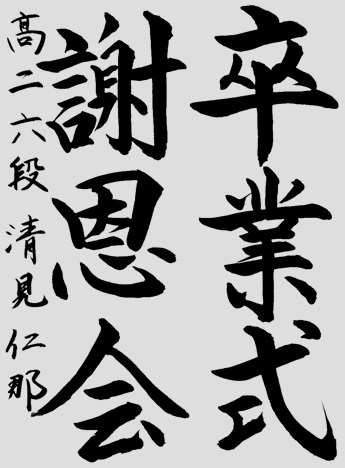 卒業式
謝恩会
高二六段 清見仁那